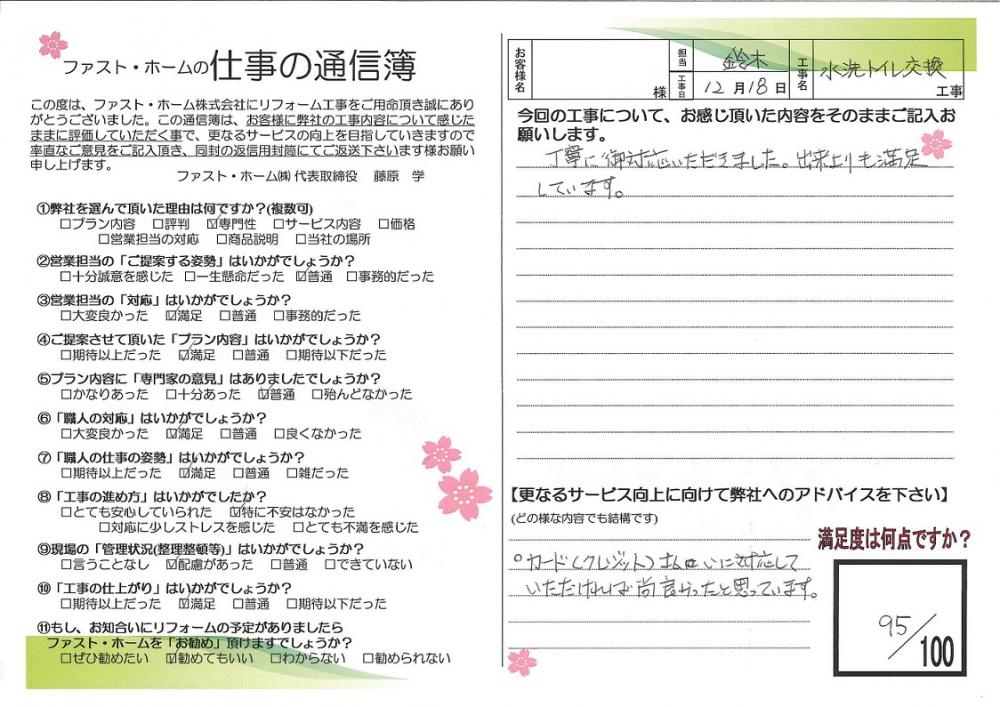 ファスト・ホームの仕事の通信簿
この度は、ファスト・ホーム株式会社にリフォーム工事をご用命頂き誠にあり
がとうございました。この通信簿は、お客様に弊社の工事内容について感じた
ままに評価していただく事で、更なるサービスの向上を目指していきますので
率直なご意見をご記入頂き、同封の返信用封筒にてご返送下さいます様お願い
申し上げます。
ファスト・ホーム㈱ 代表取締役 藤原 学
①弊社を選んで頂いた理由は何ですか？(複数可)
□プラン内容 □評判 ☑専門性 □サービス内容 □価格
□営業担当の対応 □商品説明 □当社の場所
②営業担当の「ご提案する姿勢」はいかがでしょうか？
□十分誠意を感じた □一生懸命だった ☑普通 □事務的だった
③営業担当の「対応」はいかがでしょうか？
□大変良かった ☑満足 □普通 □事務的だった
④ご提案させて頂いた「プラン内容」はいかがでしょうか？
□期待以上だった ☑満足 □普通 □期待以下だった
⑤プラン内容に「専門家の意見」はありましたでしょうか？
□かなりあった □十分あった ☑普通 □殆んどなかった
⑥「職人の対応」はいかがでしょうか？
□大変良かった ☑満足 □普通 □良くなかった
⑦「職人の仕事の姿勢」はいかがでしょうか？
□期待以上だった ☑満足 □普通 □雑だった
⑧「工事の進め方」はいかがでしたか？
□とても安心していられた ☑特に不安はなかった
□対応に少しストレスを感じた □とても不満を感じた
⑨現場の「管理状況(整理整頓等)」はいかがでしょうか？
□言うことなし ☑配慮があった □普通 □できていない
⑩「工事の仕上がり」はいかがでしょうか？
□期待以上だった ☑満足 □普通 □期待以下だった
⑪もし、お知合いにリフォームの予定がありましたら
ファスト・ホームを「お勧め」頂けますでしょうか？
□ぜひ勧めたい ☑勧めてもいい □わからない □勧められない
お客様名 様 担当 鈴木 工事日 12月18日 工事名 水洗トイレ交換 工事
今回の工事について、お感じ頂いた内容をそのままご記入お
願いします。
丁寧に御対応いただきました。出来上りも満足
しています。
【更なるサービス向上に向けて弊社へのアドバイスを下さい】
(どの様な内容でも結構です)
満足度は何点ですか？
○カード(クレジット)払いに対応して
いただければ尚良かったと思っています。
95/100